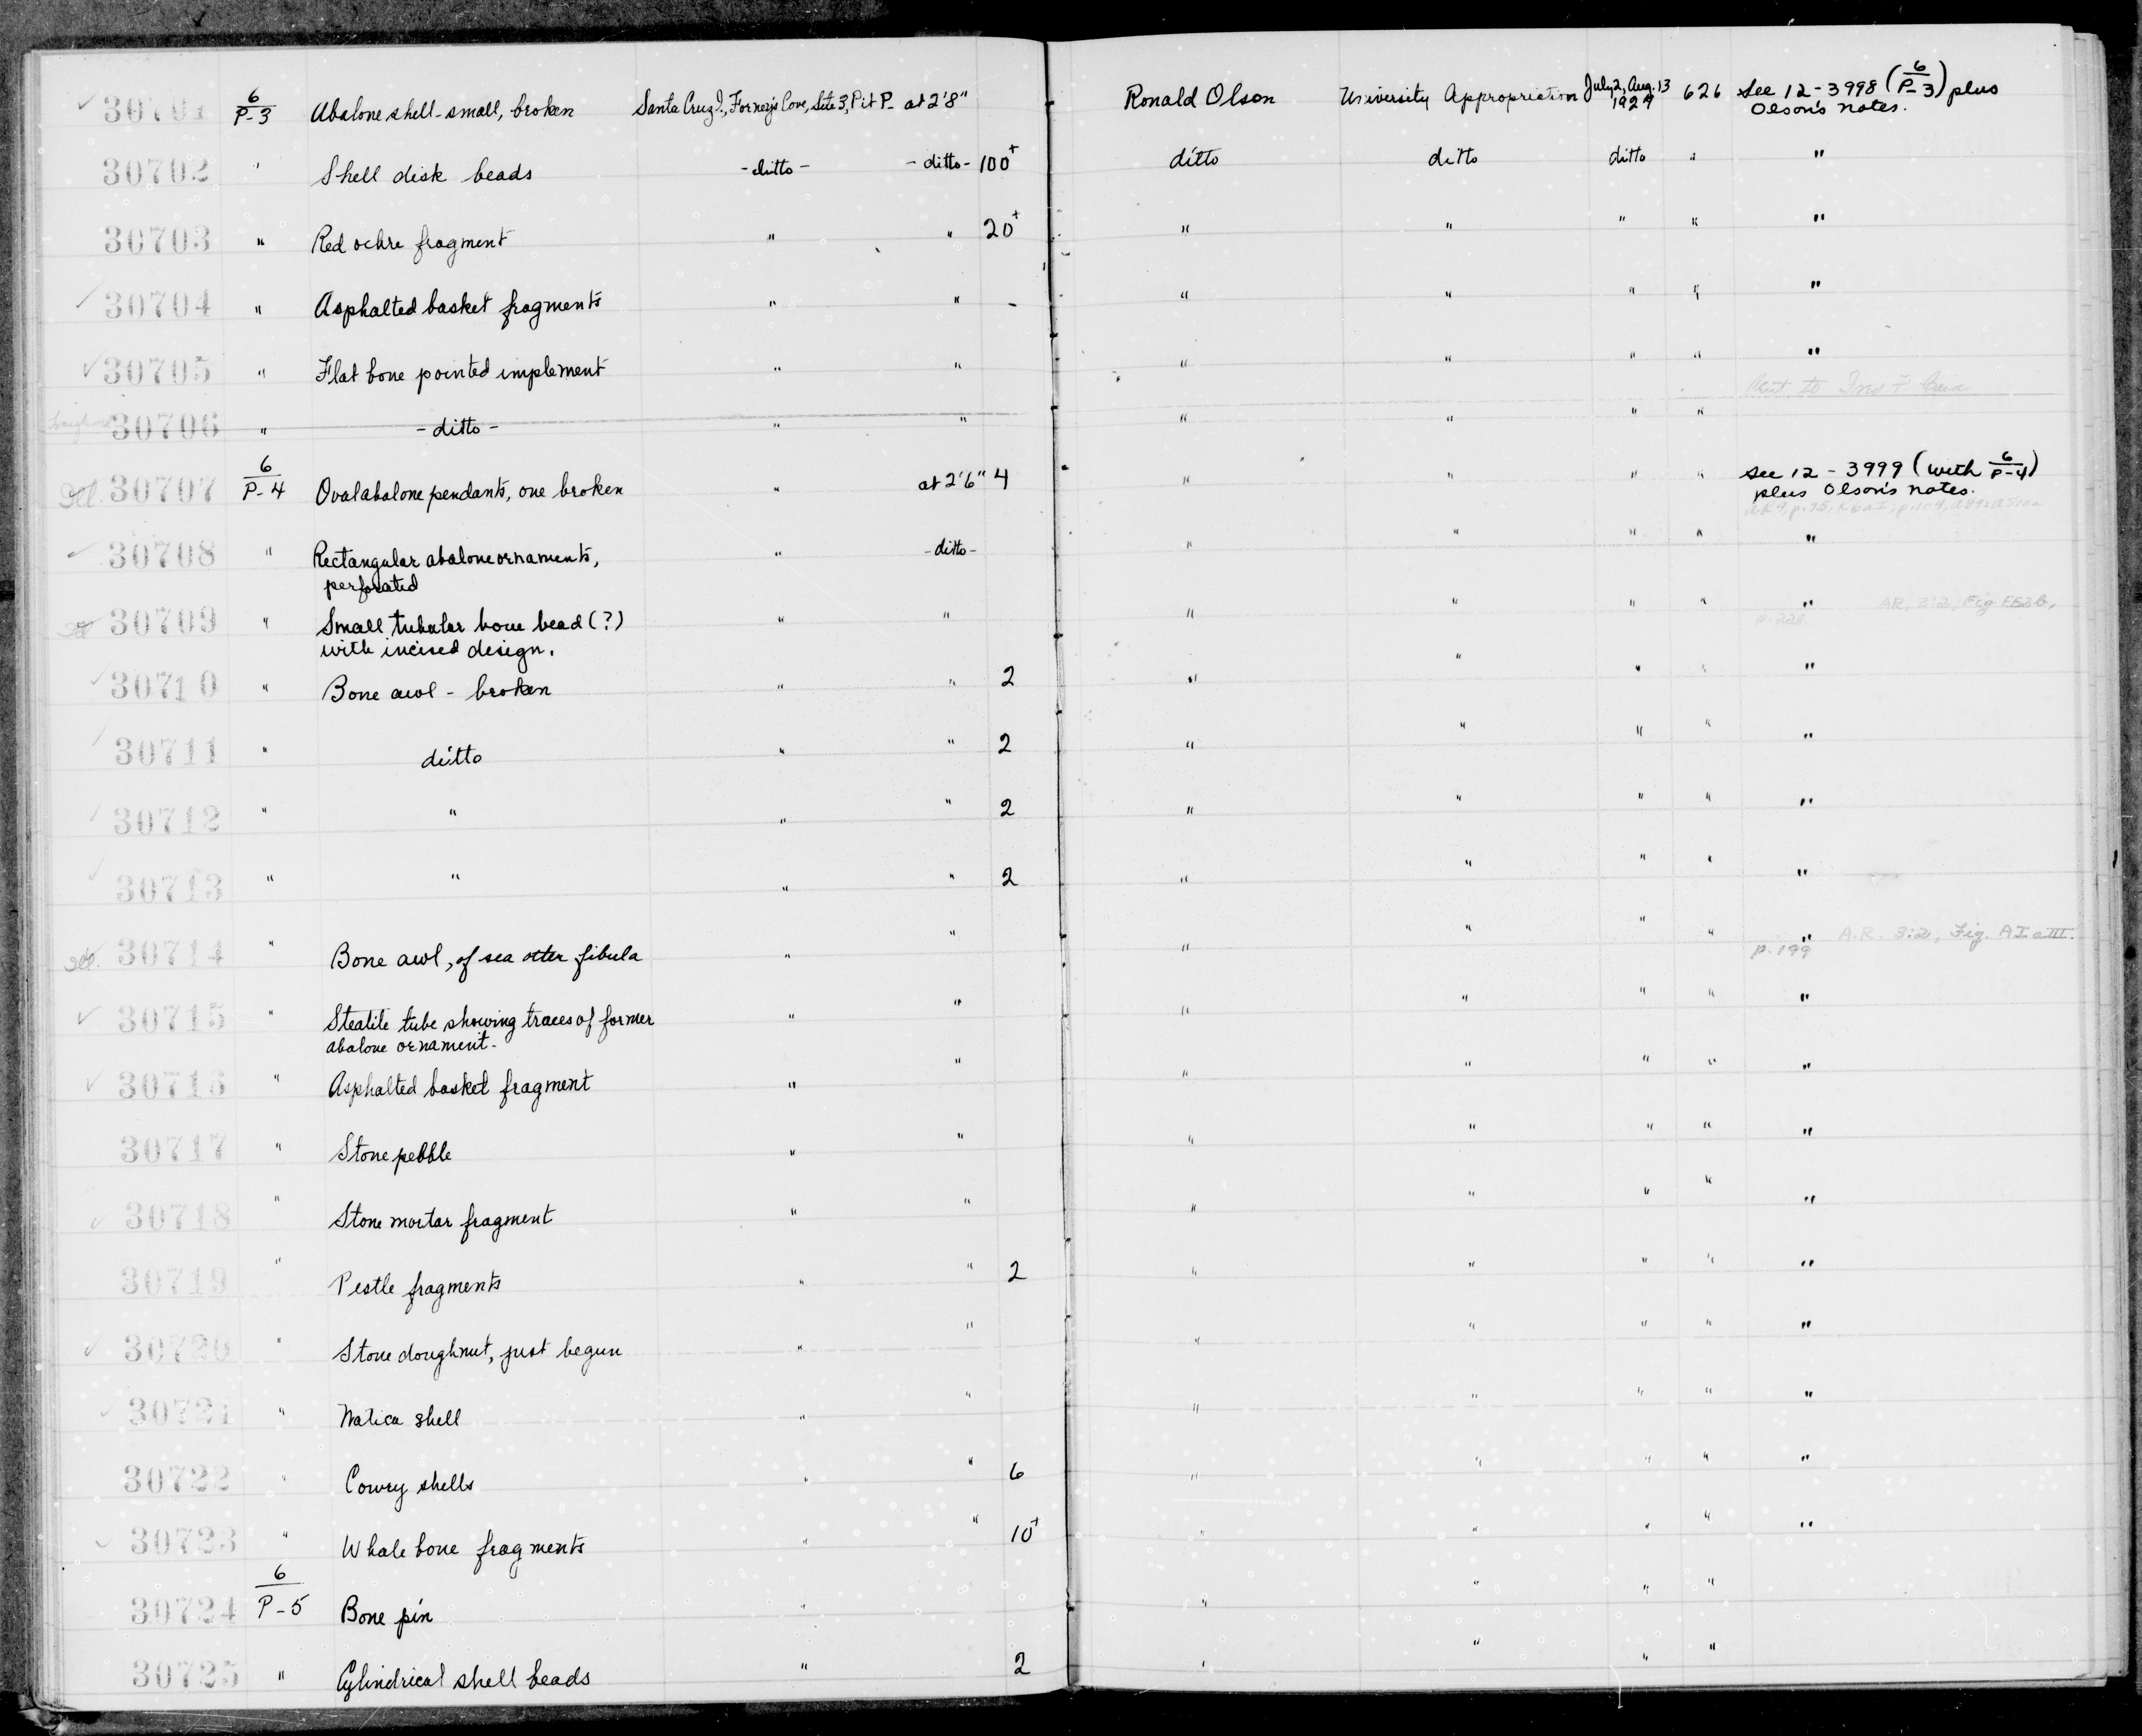 30701 6/P-3 Abalone shell - small, broken Santa Cruz I., Forney's Cove, Site 3, Pit P - at 2'8" Ronald Olson University Appropriation July 2, Aug. 13 1929 626 See 12-3998 (6/P-3) plus
Olson's notes.
30702 " Shell disk beads - ditto - - ditto - 100+ ditto ditto ditto " "
30703 " Red ochre fragment " " 20+ " " " " "
30704 " Asphalted basket fragments " " - " " " " "
30705 " Flat bone pointed implement " " " " " " "
30706 " - ditto - " " " " " "
30707 6/P-4 Oval abalone pendants, one broken " at 2'6" 4 " " " " See 12-3999 (with 6/P-4)
plus Olson's notes.
30708 " Rectangular abalone ornaments, " - ditto - " " " " "
perforated
Ill. 30709 " Small tubular bone bead (?) " " " " " " " AR, 3:2, Fig
with incised design. p. 228
30710 " Bone awl - broken " " 2 " " " " "
30711 " ditto " " 2 " " " " "
30712 " " " " 2 " " " " "
30713 " " " " 2 " " " " "
Ill. 30714 " Bone awl, of sea otter fibula " " " " " " " A.R. 3:2, Fig. AI a III.
p. 199
30715 " Steatite tube showing traces of former " " " " " " "
abalone ornament -
30716 " Asphalted basket fragment " " " " " " "
30717 " Stone pebble " " " " " " "
30718 " Stone mortar fragment " " " " " " "
30719 " Pestle fragments " " 2 " " " " "
30720 " Stone doughnut, just begun " " " " " " "
30721 " Natica shell " " " " " " "
30722 " Cowry shells " " 6 " " " " "
30723 " Whale bone fragments " " 10+ " " " " "
30724 6/P-5 Bone pin " " " " "
30725 " Cylindrical shell beads " 2 " " " "